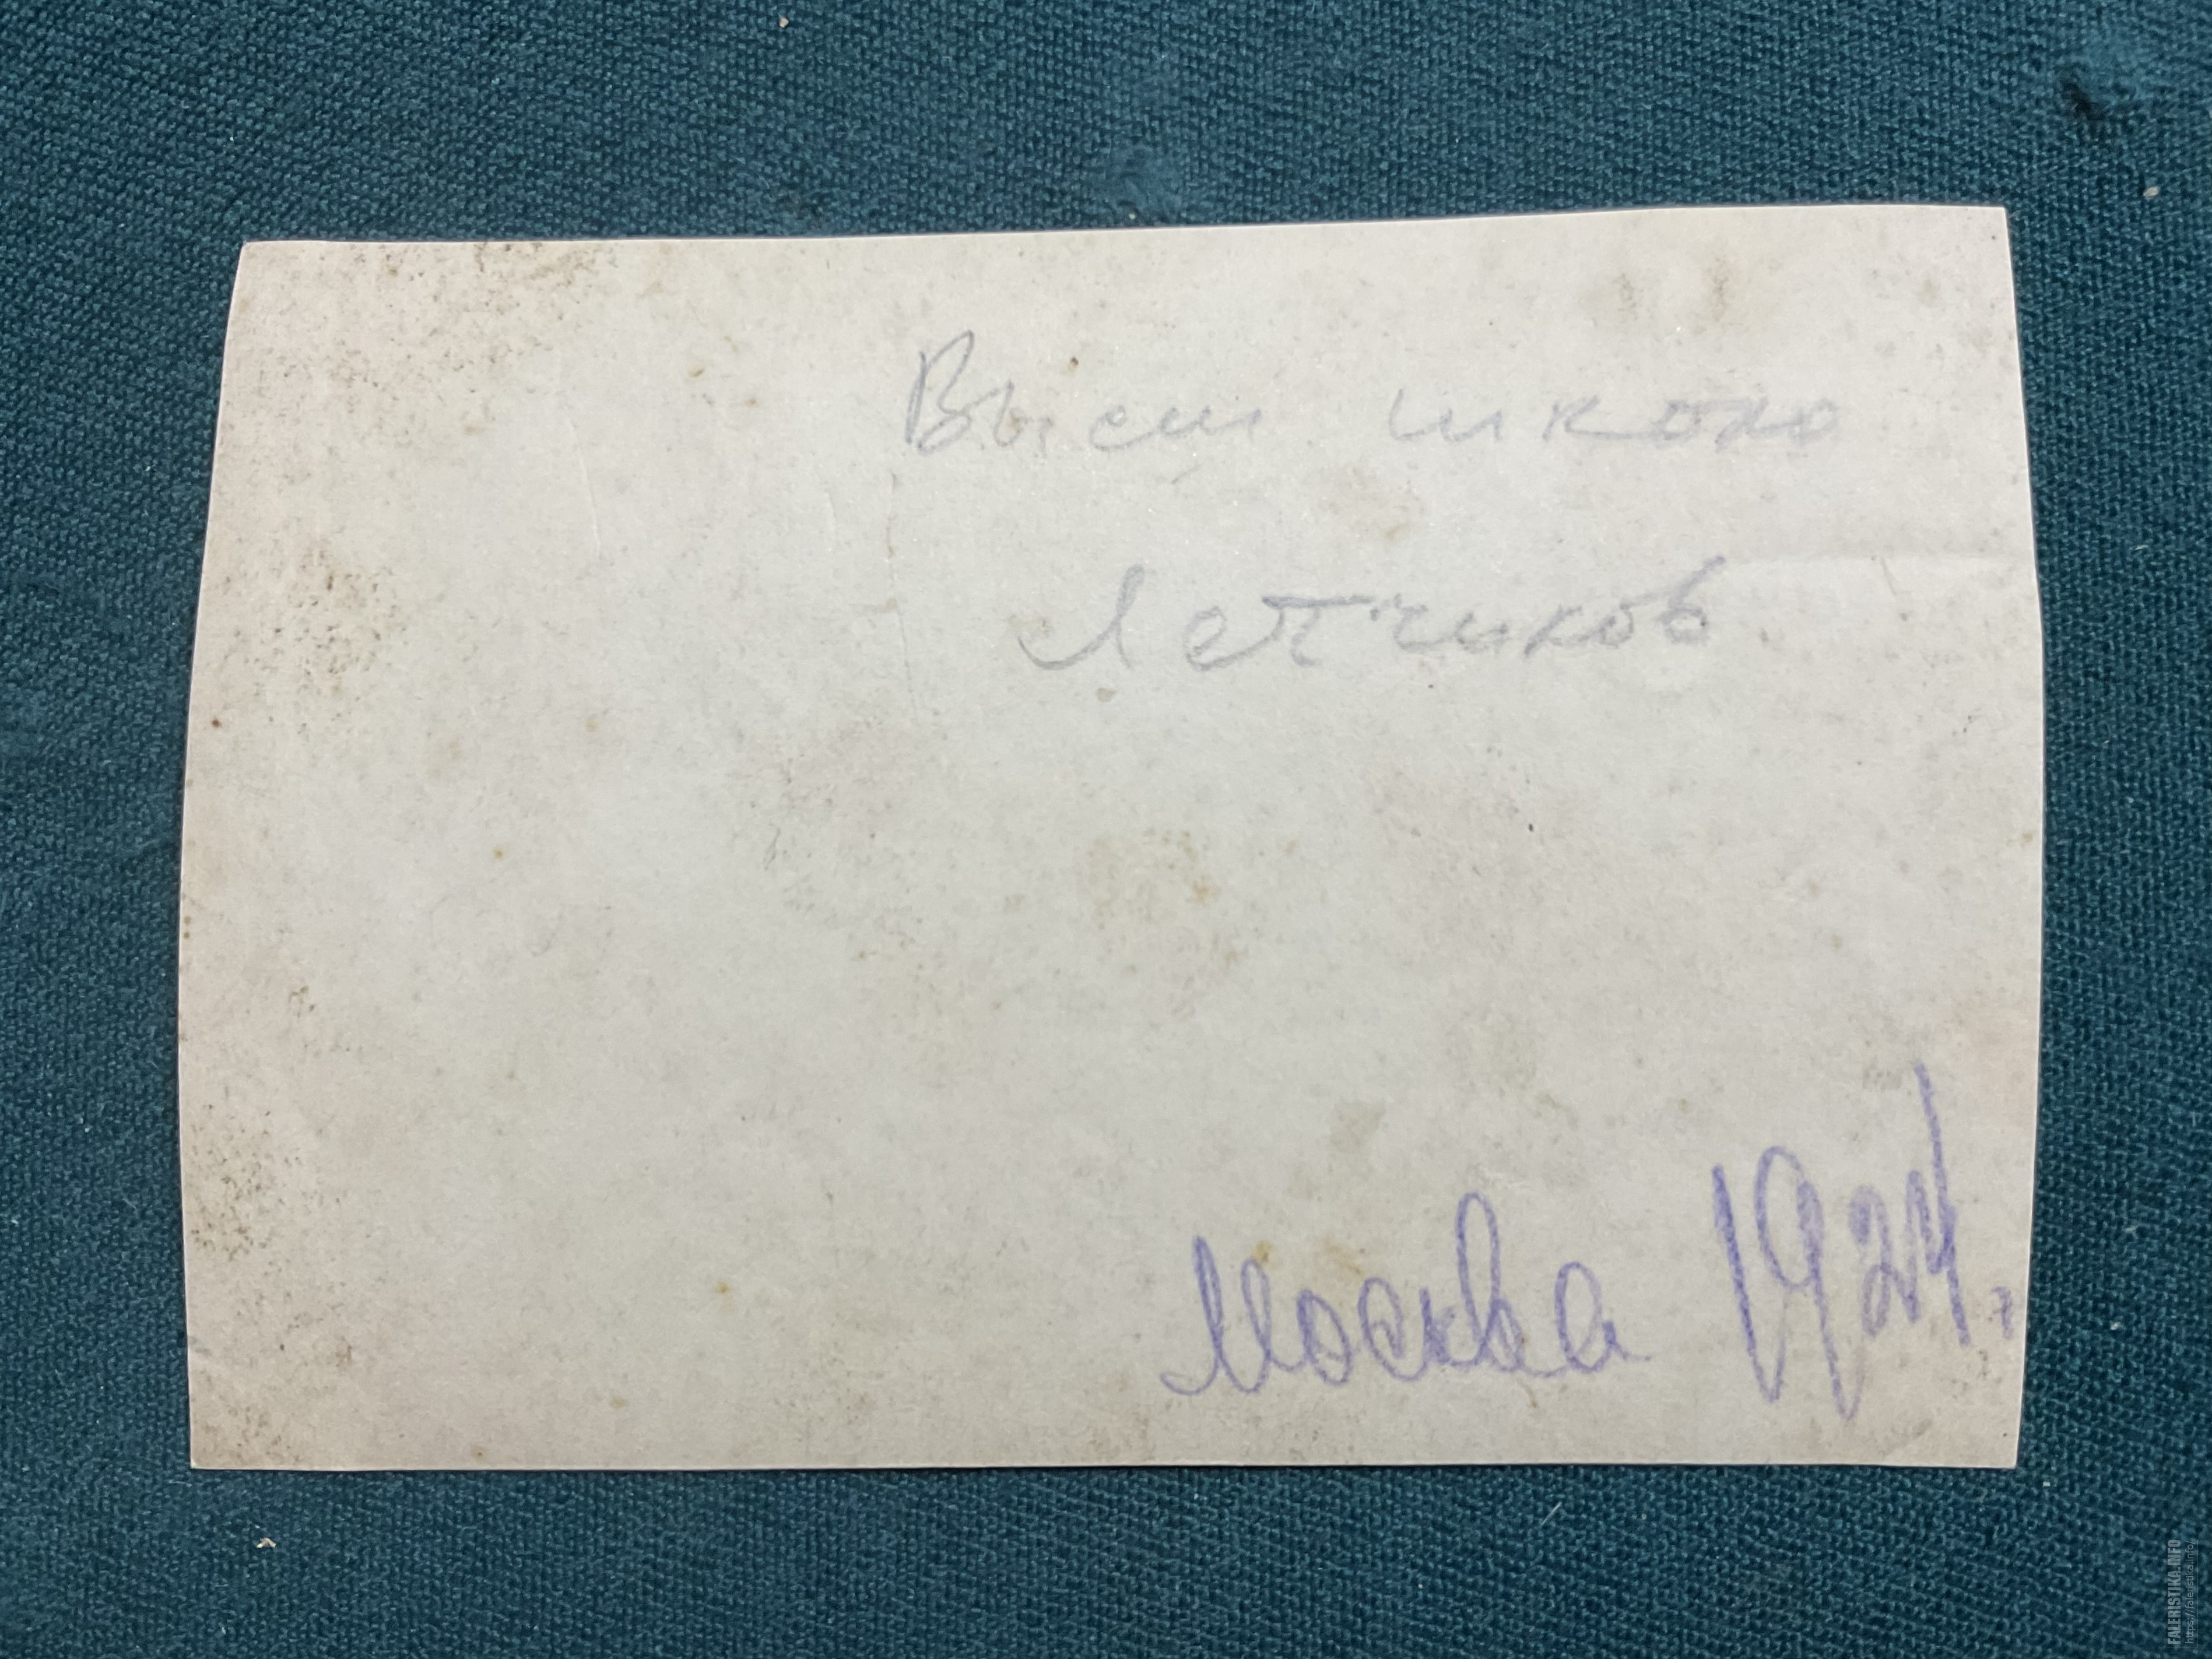 Высш школа
Летчиков
Москва 1924г.
FALERISTIKA.INFO
https://faleristika.info/